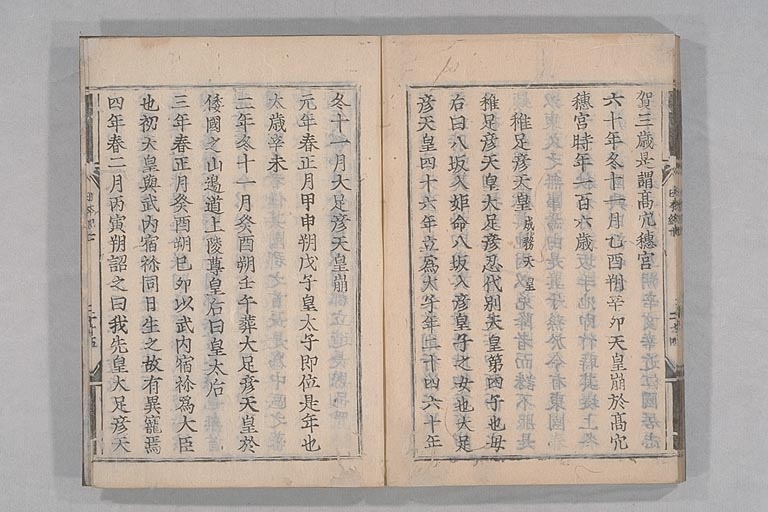 賀三歳是謂髙穴穗宮
六十年冬十一月乙酉朔辛卯天皇崩於髙穴
穗宮時年一百六歳
稚足彦天皇 成務天皇
稚足彦天皇大足彦忍代別天皇第四子也母
右曰八坂入姫命八坂入彦皇子之女也大足
彦天皇四十六年立爲太子年二十四六十年
冬十一月大足彦天皇崩
元年春正月甲申朔戊子皇太子即位是年也
太歳辛未
二年冬十一月癸酉朔壬午葬大足彦天皇於
倭國之山邊道上陵尊皇后曰皇太后
三年春正月癸酉朔己卯以武内宿祢爲大臣
也初天皇與武内宿祢同日生之故有異寵焉
四年春二月丙寅朔詔之曰我先皇大足彦天